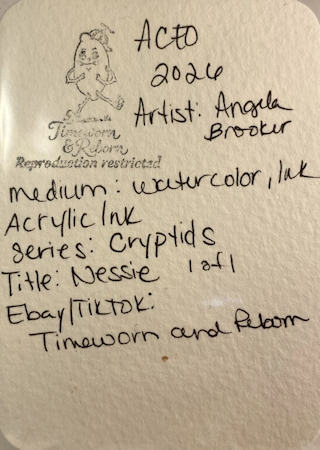 ACEO
2026
Artist: Angela
Brooker
Timeworn
& Reborn
Reproduction restricted
medium: watercolor, Ink
Acrylic Ink
Series: Cryptids
Title: Nessie 1 of 1
Ebay/TikTok:
Timeworn and Reborn